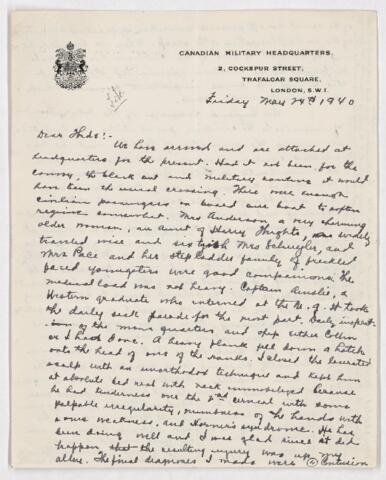 CANADIAN MILITARY HEADQUARTERS,
2, COCKSPUR STREET,
TRAFALGAR SQUARE,
LONDON, S.W.1.
Friday May 24th 1940
Dear :-
We have arrived and are attached at
headquarters for the present. Had it not been for the
convoy, the black out and military routine it would
have been the usual crossing. There were enough
civilian passengers on board our boat to soften
regime somewhat. Mrs Anderson, a very charming
older woman, an aunt of Harry Knights, widely
traveled wise and sixtyish Mrs and
Mrs Pace and her step ladder family of freckled
faced youngsters were good companions. The
medical load was not heavy. Captain Ainslie, a
Western graduate who interned at the M. G. H took
the daily sick parade for the most part. Daily inspect-
ion of the mens quarters and ship either Collin
or I had done. A heavy plank fell down a hatch
onto the head of one of the ranks. I closed the lacerated
scalp with an unorthodox technique and kept him
at absolute bed rest with neck immobilized because
he had tenderness over the 2nd cervical with some
palpable irregularity, numbness of the hands with
some weakness, and Horner's syndrome. He has
been doing well and I was glad since it did
happen that the resulting injury was up my
alley. The final diagnoses I made were (1) Contusion